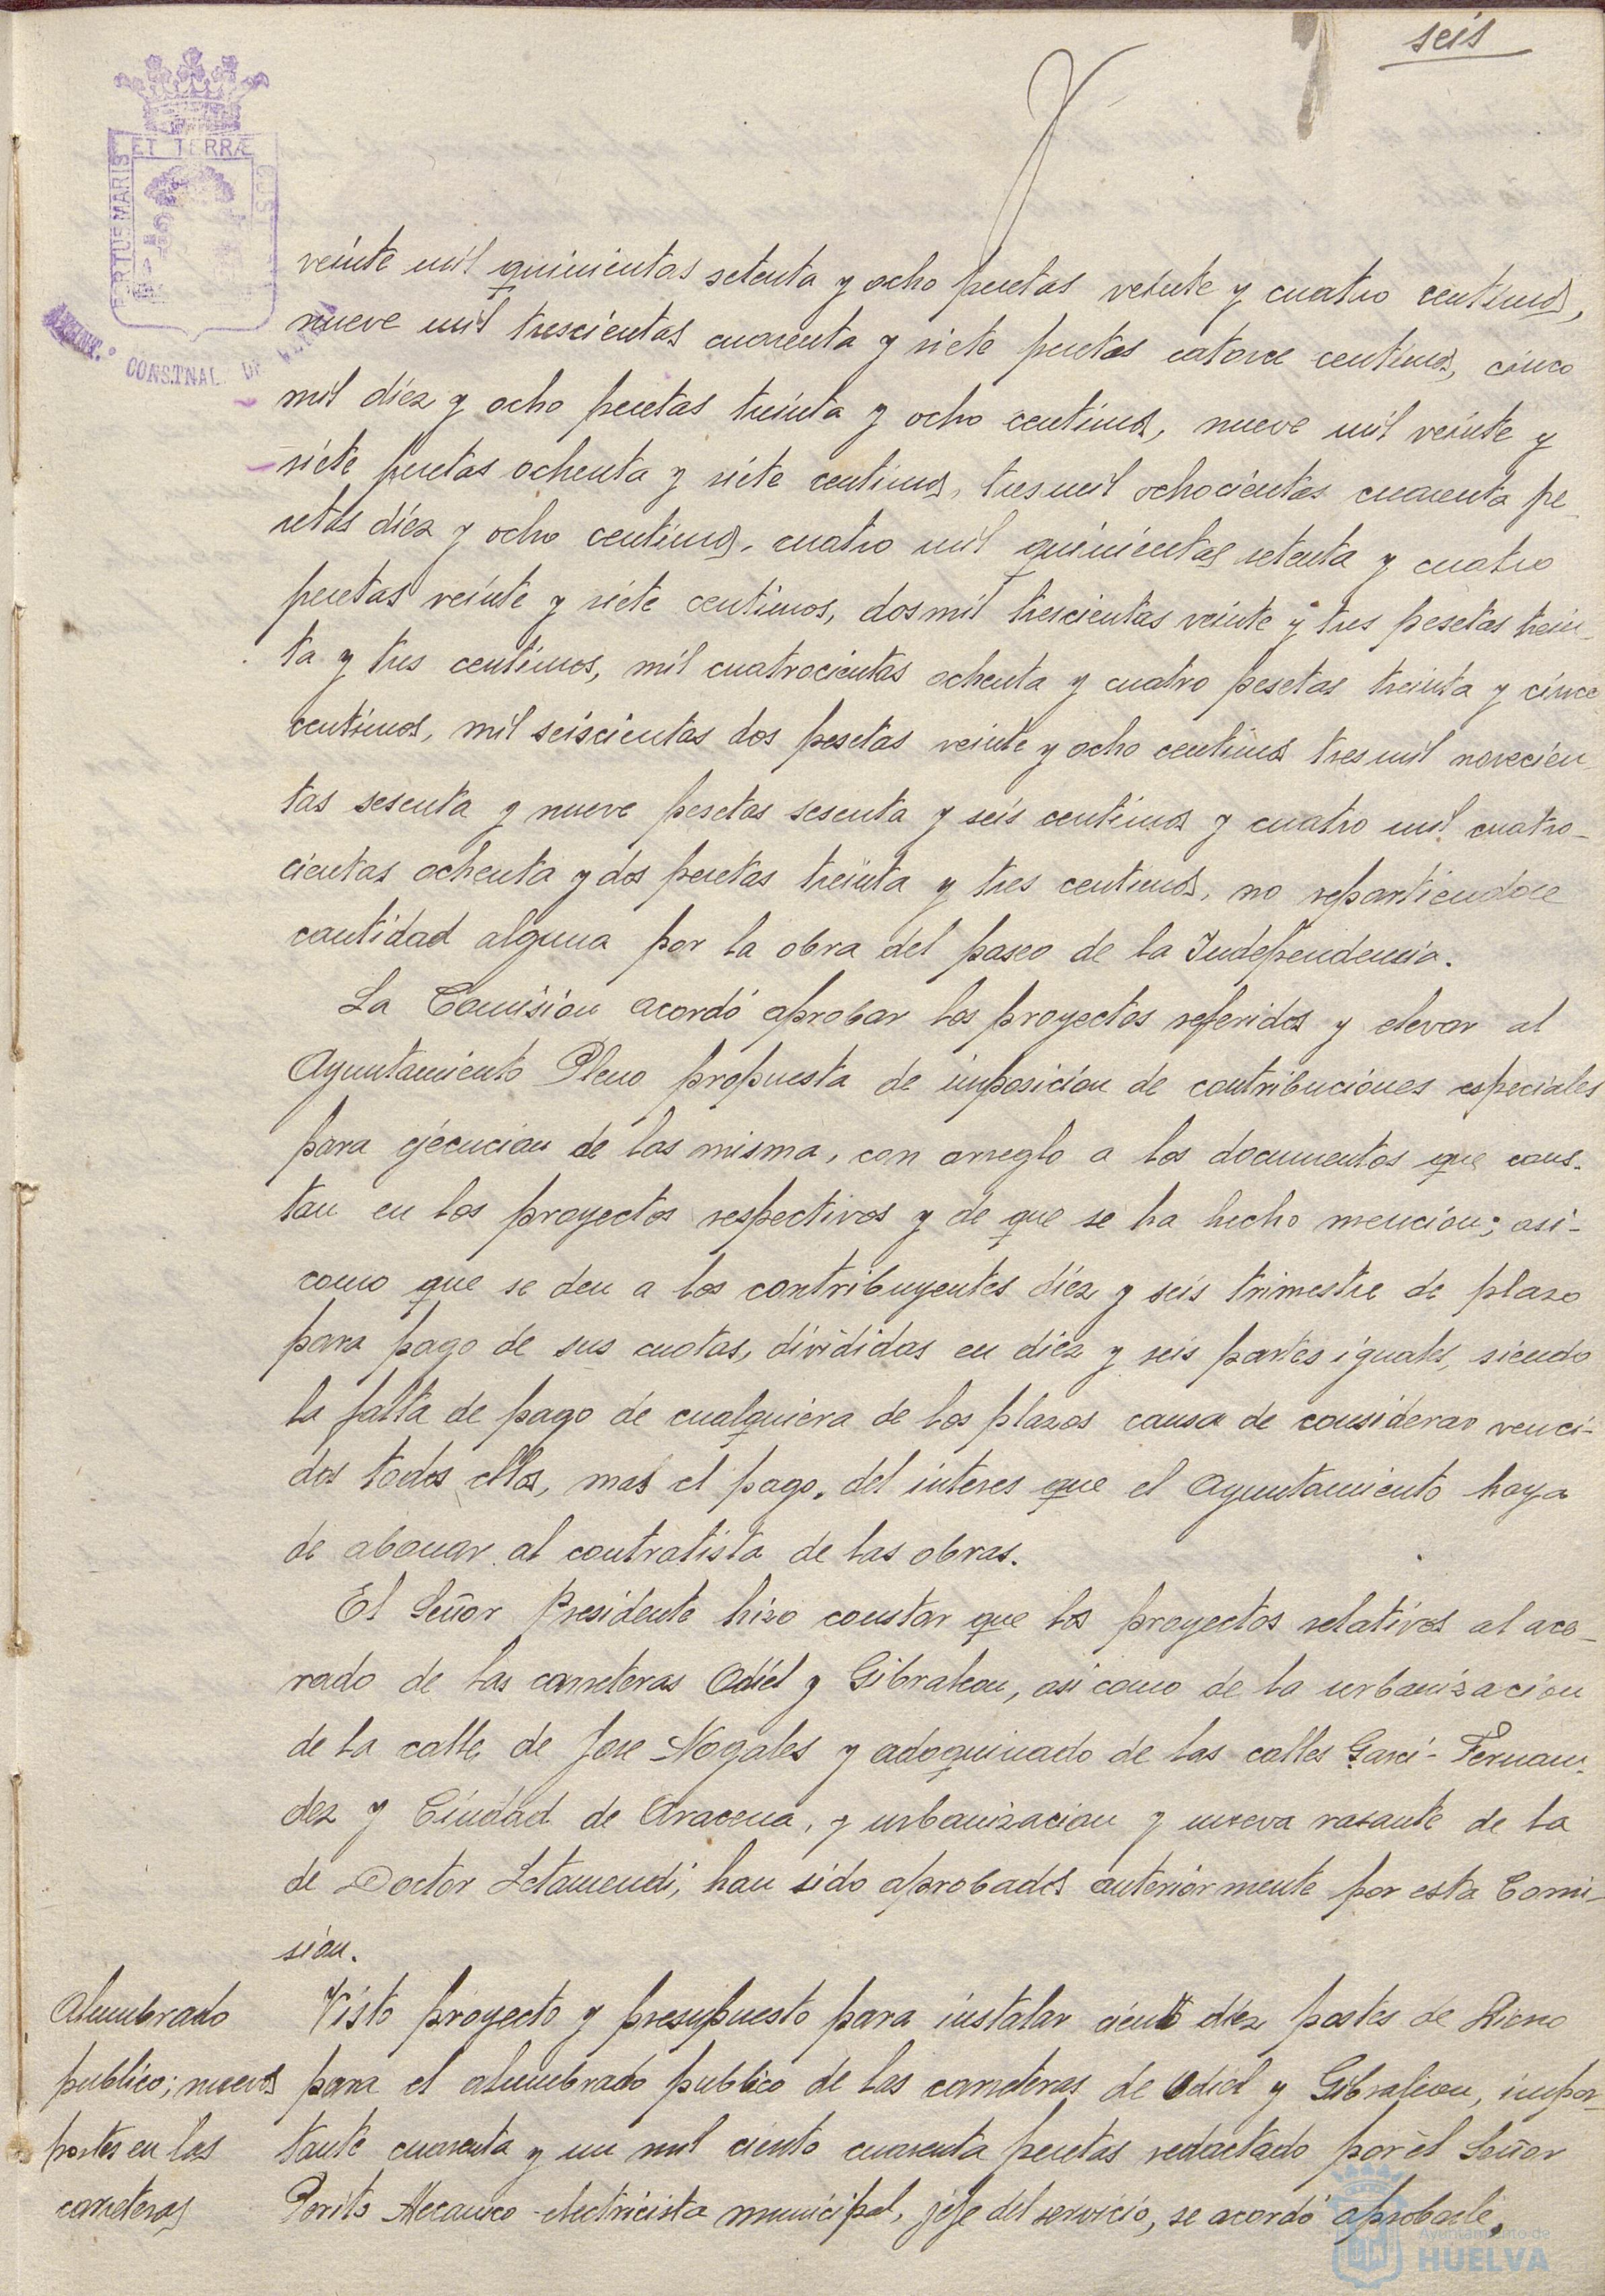 seis
ET TERRÆ
PORTUS MARIS
CUS
CONSTNAL. DE
veinte mil quinientas setenta y ocho pesetas veinte y cuatro centimos,
nueve mil trescientas cuarenta y siete pesetas catorce centimos, cinco
mil diez y ocho pesetas treinta y ocho centimos, nueve mil veinte y
siete pesetas ochenta y siete centimos, tres mil ochocientas cuarenta pe-
setas diez y ocho centimos, cuatro mil quinientas setenta y cuatro
pesetas veinte y siete centimos, dos mil trescientas veinte y tres pesetas trein-
ta y tres centimos, mil cuatrocientas ochenta y cuatro pesetas treinta y cinco
centimos, mil seiscientas dos pesetas veinte y ocho centimos tres mil novecien-
tas sesenta y nueve pesetas sesenta y seis centimos y cuatro mil cuatro-
cientas ochenta y dos pesetas treinta y tres centimos, no repartiendose
cantidad alguna por la obra del paseo de la Independencia.
La Comision acordó aprobar los proyectos referidos y elevar al
Ayuntamiento Pleno propuesta de imposicion de contribuciones especiales
para ejecucion de las misma, con arreglo a los documentos que cons-
tan en los proyectos respectivos y de que se ha hecho mencion; asi-
como que se den a los contribuyentes diez y seis trimestre de plazo
para pago de sus cuotas, divididas en diez y seis partes iguales, siendo
la falta de pago de cualquiera de los plazos causa de considerar venci-
dos todos ellos, mas el pago, del interes que el Ayuntamiento haya
de abonar al contratista de las obras.
El Señor Presidente hizo constar que los proyectos relativos al ace-
rado de las carreteras Odiel y Gibraleon, asi como de la urbanizacion
de la calle de Jose Nogales y adoquinado de las calles Garci-Fernan-
dez y Ciudad de Aracena, y urbanizacion y nueva rasante de la
de Doctor Letamendi, han sido aprobados anteriormente por esta Comi-
sion.
Alumbrado
publico; nuevos
postes en las
carreteras
Visto proyecto y presupuesto para instalar ciento diez postes de hierro
para el alumbrado publico de las carreteras de Odiel y Gibraleon, impor-
tante cuarenta y un mil ciento cuarenta pesetas redactado por el Señor
Perito Mecanico-electricista municipal, jefe del servicio, se acordó aprobarle,
Ayuntamiento de
HUELVA